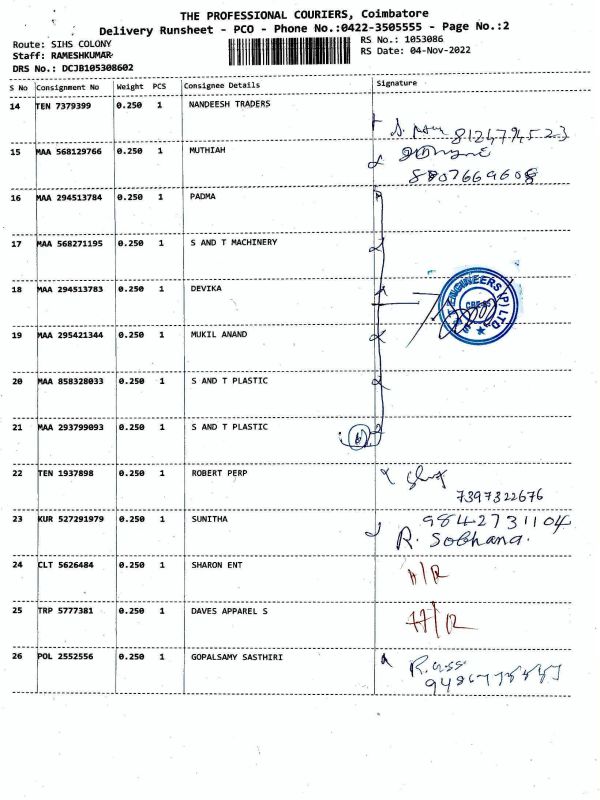 THE PROFESSIONAL COURIERS, Coimbatore
Delivery Runsheet - PCO - Phone No.:0422-3505555 - Page No.:2
Route: SIHS COLONY RS No.: 1053086
Staff: RAMESHKUMAR RS Date: 04-Nov-2022
DRS No.: DCJB105308602
S No Consignment No Weight PCS Consignee Details Signature
14 TEN 7379399 0.250 1 NANDEESH TRADERS
8124794523
15 MAA 568129766 0.250 1 MUTHIAH
8807669608
16 MAA 294513784 0.250 1 PADMA
17 MAA 568271195 0.250 1 S AND T MACHINERY
18 MAA 294513783 0.250 1 DEVIKA
ENGINEERS (P) LTD
19 MAA 295421344 0.250 1 MUKIL ANAND
20 MAA 858328033 0.250 1 S AND T PLASTIC
21 MAA 293799093 0.250 1 S AND T PLASTIC 6
22 TEN 1937898 0.250 1 ROBERT PERP
7397322676
23 KUR 527291979 0.250 1 SUNITHA 9842731104
R. Sobhana.
24 CLT 5626484 0.250 1 SHARON ENT A/R
25 TRP 5777381 0.250 1 DAVES APPAREL S H/R
26 POL 2552556 0.250 1 GOPALSAMY SASTHIRI